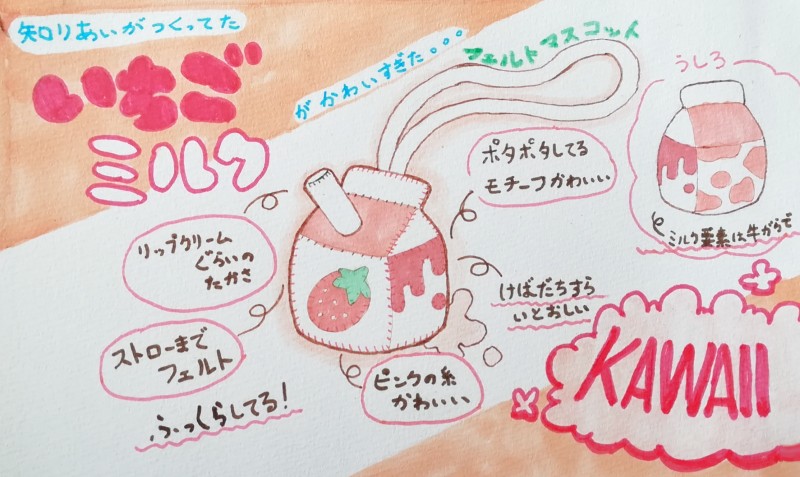 知りあいがつくってた
いちご
ミルク
フェルトマスコット
がかわいすぎた。。。
うしろ
ミルク要素は牛がらで
ポタポタしてる
モチーフかわいい
リップクリーム
ぐらいの
たかさ
けばだちすら
いとおしい
ストローまで
フェルト
ピンクの糸
かわいい
ふっくらしてる!
KAWAII